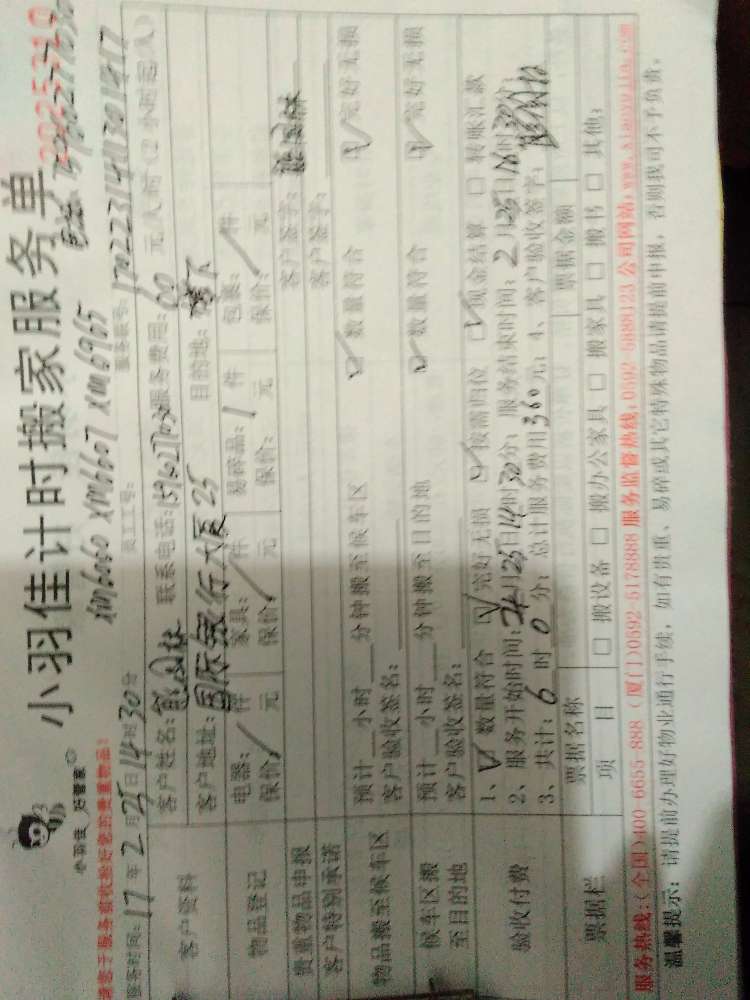 小羽佳 好管家
小羽佳计时搬家服务单
2025310
XM6060 XM6607 XM6965
请您于服务前收拾好您的贵重物品:
服务时间:17年2月25日14时30分 员工工号: 服务账号:170223141130141417
客户资料
客户姓名: 联系电话: 服务费用:60元/人/时(2小时起/人)
客户地址:国际银行大厦25 目的地:楼下
物品登记
电器:/件 家具:/件 易碎品:1件 包裹:/件
保价:/元 保价:/元 保价:/元 保价:/元
贵重物品申报 客户签字:
客户特别承诺 客户签字:
物品搬至候车区
预计 小时 分钟搬至候车区 ☑数量符合 ☑完好无损
客户验收签名:
候车区搬至目的地
预计 小时 分钟搬至目的地 ☑数量符合 ☑完好无损
客户验收签名:
验收付费
1、☑数量符合 ☑完好无损 ☑按需归位 ☑现金结算 □转账汇款
2、服务开始时间:2月25日14时30分;服务结束时间:2月25日16时30分
3、共计:6时0分;总计服务费用360元;4、客户验收签字:
票据栏
票据名称 票据金额
项目 □搬设备 □搬办公家具 □搬家具 □搬书 □其他:
服务热线:(全国)400-6655-888 (厦门)0592-5178888 服务监督热线:0592-5889123 公司网站:www.xiaoyujia.com
温馨提示:请提前办理好物业通行手续,如有贵重、易碎或其它特殊物品请提前申报,否则我司不予负责。